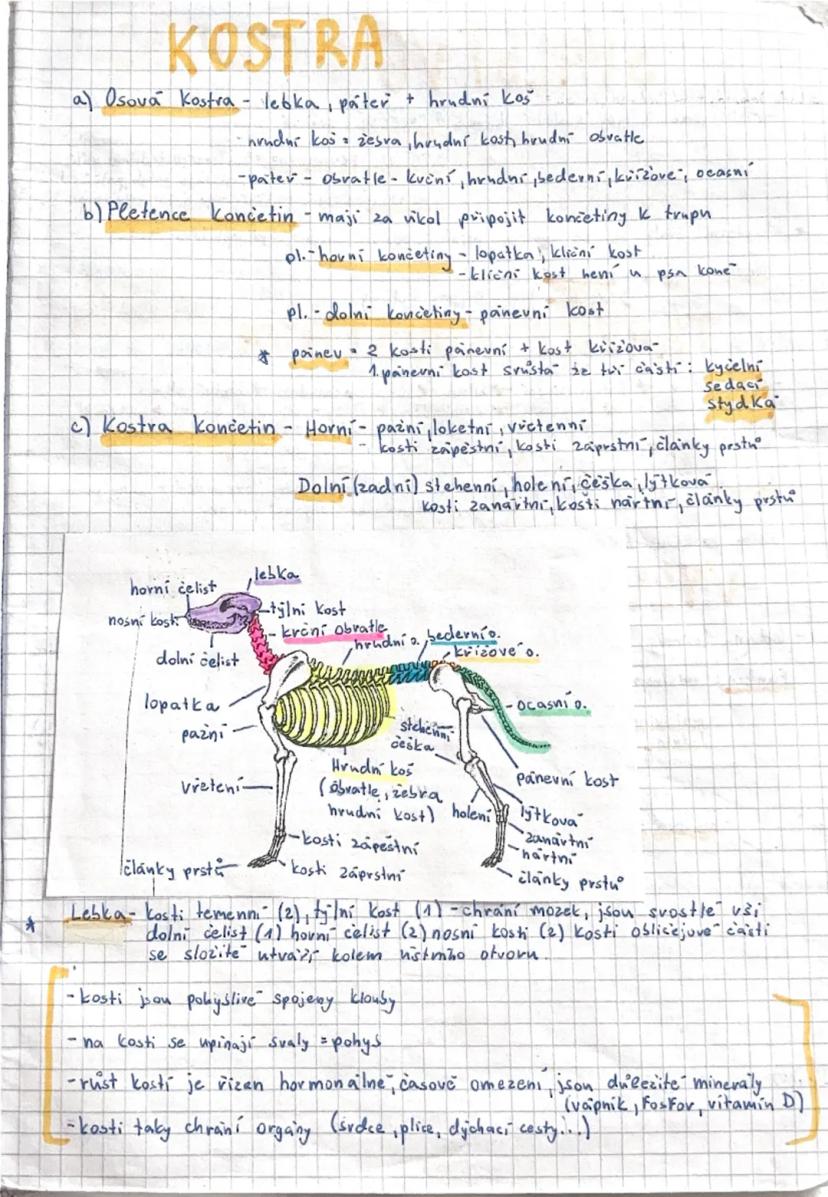 KOSTRA
a) Osová kostra - lebka, páteř + hrudní koš
- hrudní koš = žebra, hrudní kost, hrudní obratle
- páteř - obratle - krční, hrudní, bederní, křížové, ocasní
b) Pletence končetin - mají za úkol připojit končetiny k trupu
pl. - horní končetiny - lopatka, klíční kost
- klíční kost není u psa koně
pl. - dolní končetiny - pánevní kost
* pánev = 2 kosti pánevní + kost křížová
1. pánevní kost srůstá ze tří částí: kyčelní
sedací
stydká
c) Kostra končetin - Horní - pažní, loketní, vřetenní
- kosti zápěstní, kosti záprstní, články prstů
Dolní (zadní) stehenní, holení, čéška, lýtková
kosti zanártní, kosti nártní, články prstů
lebka
horní čelist
týlní kost
nosní kost
krční obratle
hrudní o.
bederní o.
křížové o.
dolní čelist
lopatka
ocasní o.
pažní
stehenní
čéška
Hrudní koš
(obratle, žebra
hrudní kost)
pánevní kost
vřetení
holení
lýtková
zanártní
kosti zápěstní
nártní
články prstů
kosti záprstní
články prstů
* Lebka - kosti temenní (2), týlní kost (1) - chrání mozek, jsou srostlé vši
dolní čelist (1) horní čelist (2) nosní kosti (2) kosti obličejové části
se složitě utváří kolem ústního otvoru.
- kosti jsou pohyblivě spojeny klouby
- na kosti se upínají svaly = pohyb
- růst kostí je řízen hormonálně, časově omezení, jsou důležité minerály
(vápník, fosfor, vitamín D)
- kosti taky chrání orgány (srdce, plíce, dýchací cesty...)